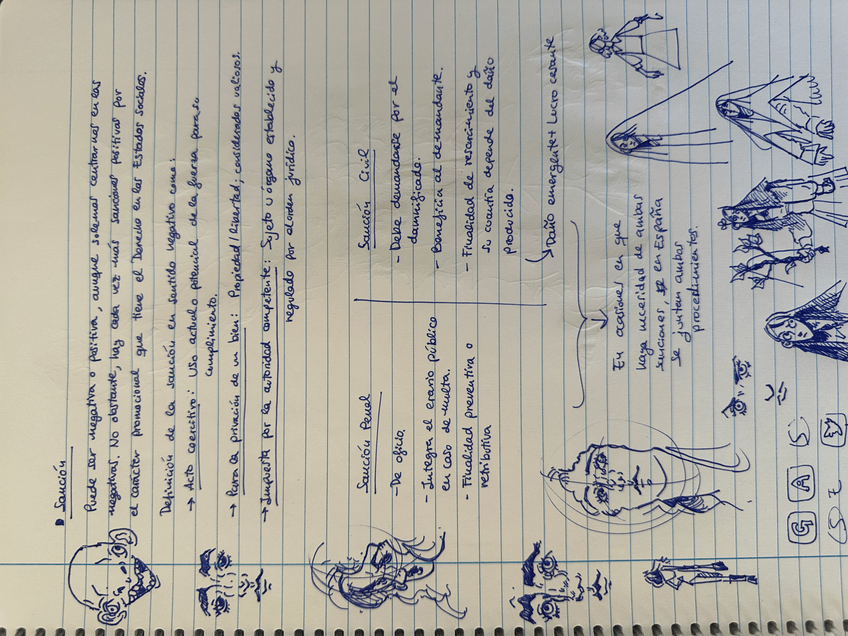 Sanción
Puede ser negativa o positiva, aunque solemos centrarnos en las
negativas. No obstante, hay cada vez más sanciones positivas por
el carácter promocional que tiene el Derecho en los Estados Sociales.
Definición de la sanción en sentido negativo como:
→ Acto coercitivo: Uso actual o potencial de la fuerza para su
cumplimiento.
→ Para la privación de un bien: Propiedad/libertad, considerados valiosos.
→ Impuesta por la autoridad competente: Sujeto u órgano establecido y
regulado por el orden jurídico.
Sanción Penal
- De oficio.
- Integra el erario público
en caso de multa.
- Finalidad preventiva o
retributiva
Sanción Civil
- Debe demandarse por el
damnificado.
- Beneficia al demandante.
- Finalidad de resarcimiento y
su cuantía depende del daño
producido.
↳ Daño emergente + Lucro cesante
En ocasiones en que
haya necesidad de ambas
sanciones, en España
se juntan ambos
procedimientos.
G A S